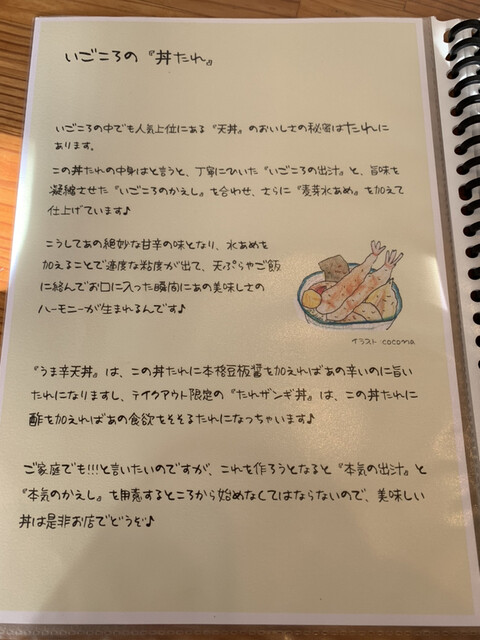 いごころの『丼たれ』
いごころの中でも人気上位にある『天丼』のおいしさの秘密はたれに
あります。
この丼たれの中身はと言うと、丁寧にひいた『いごころの出汁』と、旨味を
凝縮させた『いごころのかえし』を合わせ、さらに『麦芽水あめ』を加えて
仕上げています♪
こうしてあの絶妙な甘辛の味となり、水あめを
加えることで適度な粘度が出て、天ぷらやご飯
に絡んでお口に入った瞬間にあの美味しさの
ハーモニーが生まれるんです♪
イラスト cocoma
『うま辛天丼』は、この丼たれに本格豆板醤を加えればあの辛いのに旨い
たれになりますし、テイクアウト限定の『たれザンギ丼』は、この丼たれに
酢を加えればあの食欲をそそるたれになっちゃいます♪
ご家庭でも!!!と言いたいのですが、これを作ろうとなると『本気の出汁』と
『本気のかえし』を用意するところから始めなくてはならないので、美味しい
丼は是非お店でどうぞ♪